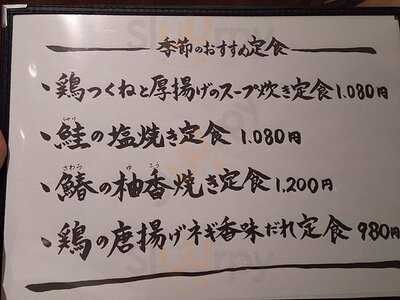 季節のおすすめ定食
・鶏つくねと厚揚げのスープ炊き定食1,080円
・鮭の塩焼き定食 1,080円
・鰆の柚香焼き定食 1,200円
・鶏の唐揚げネギ香味だれ定食 980円